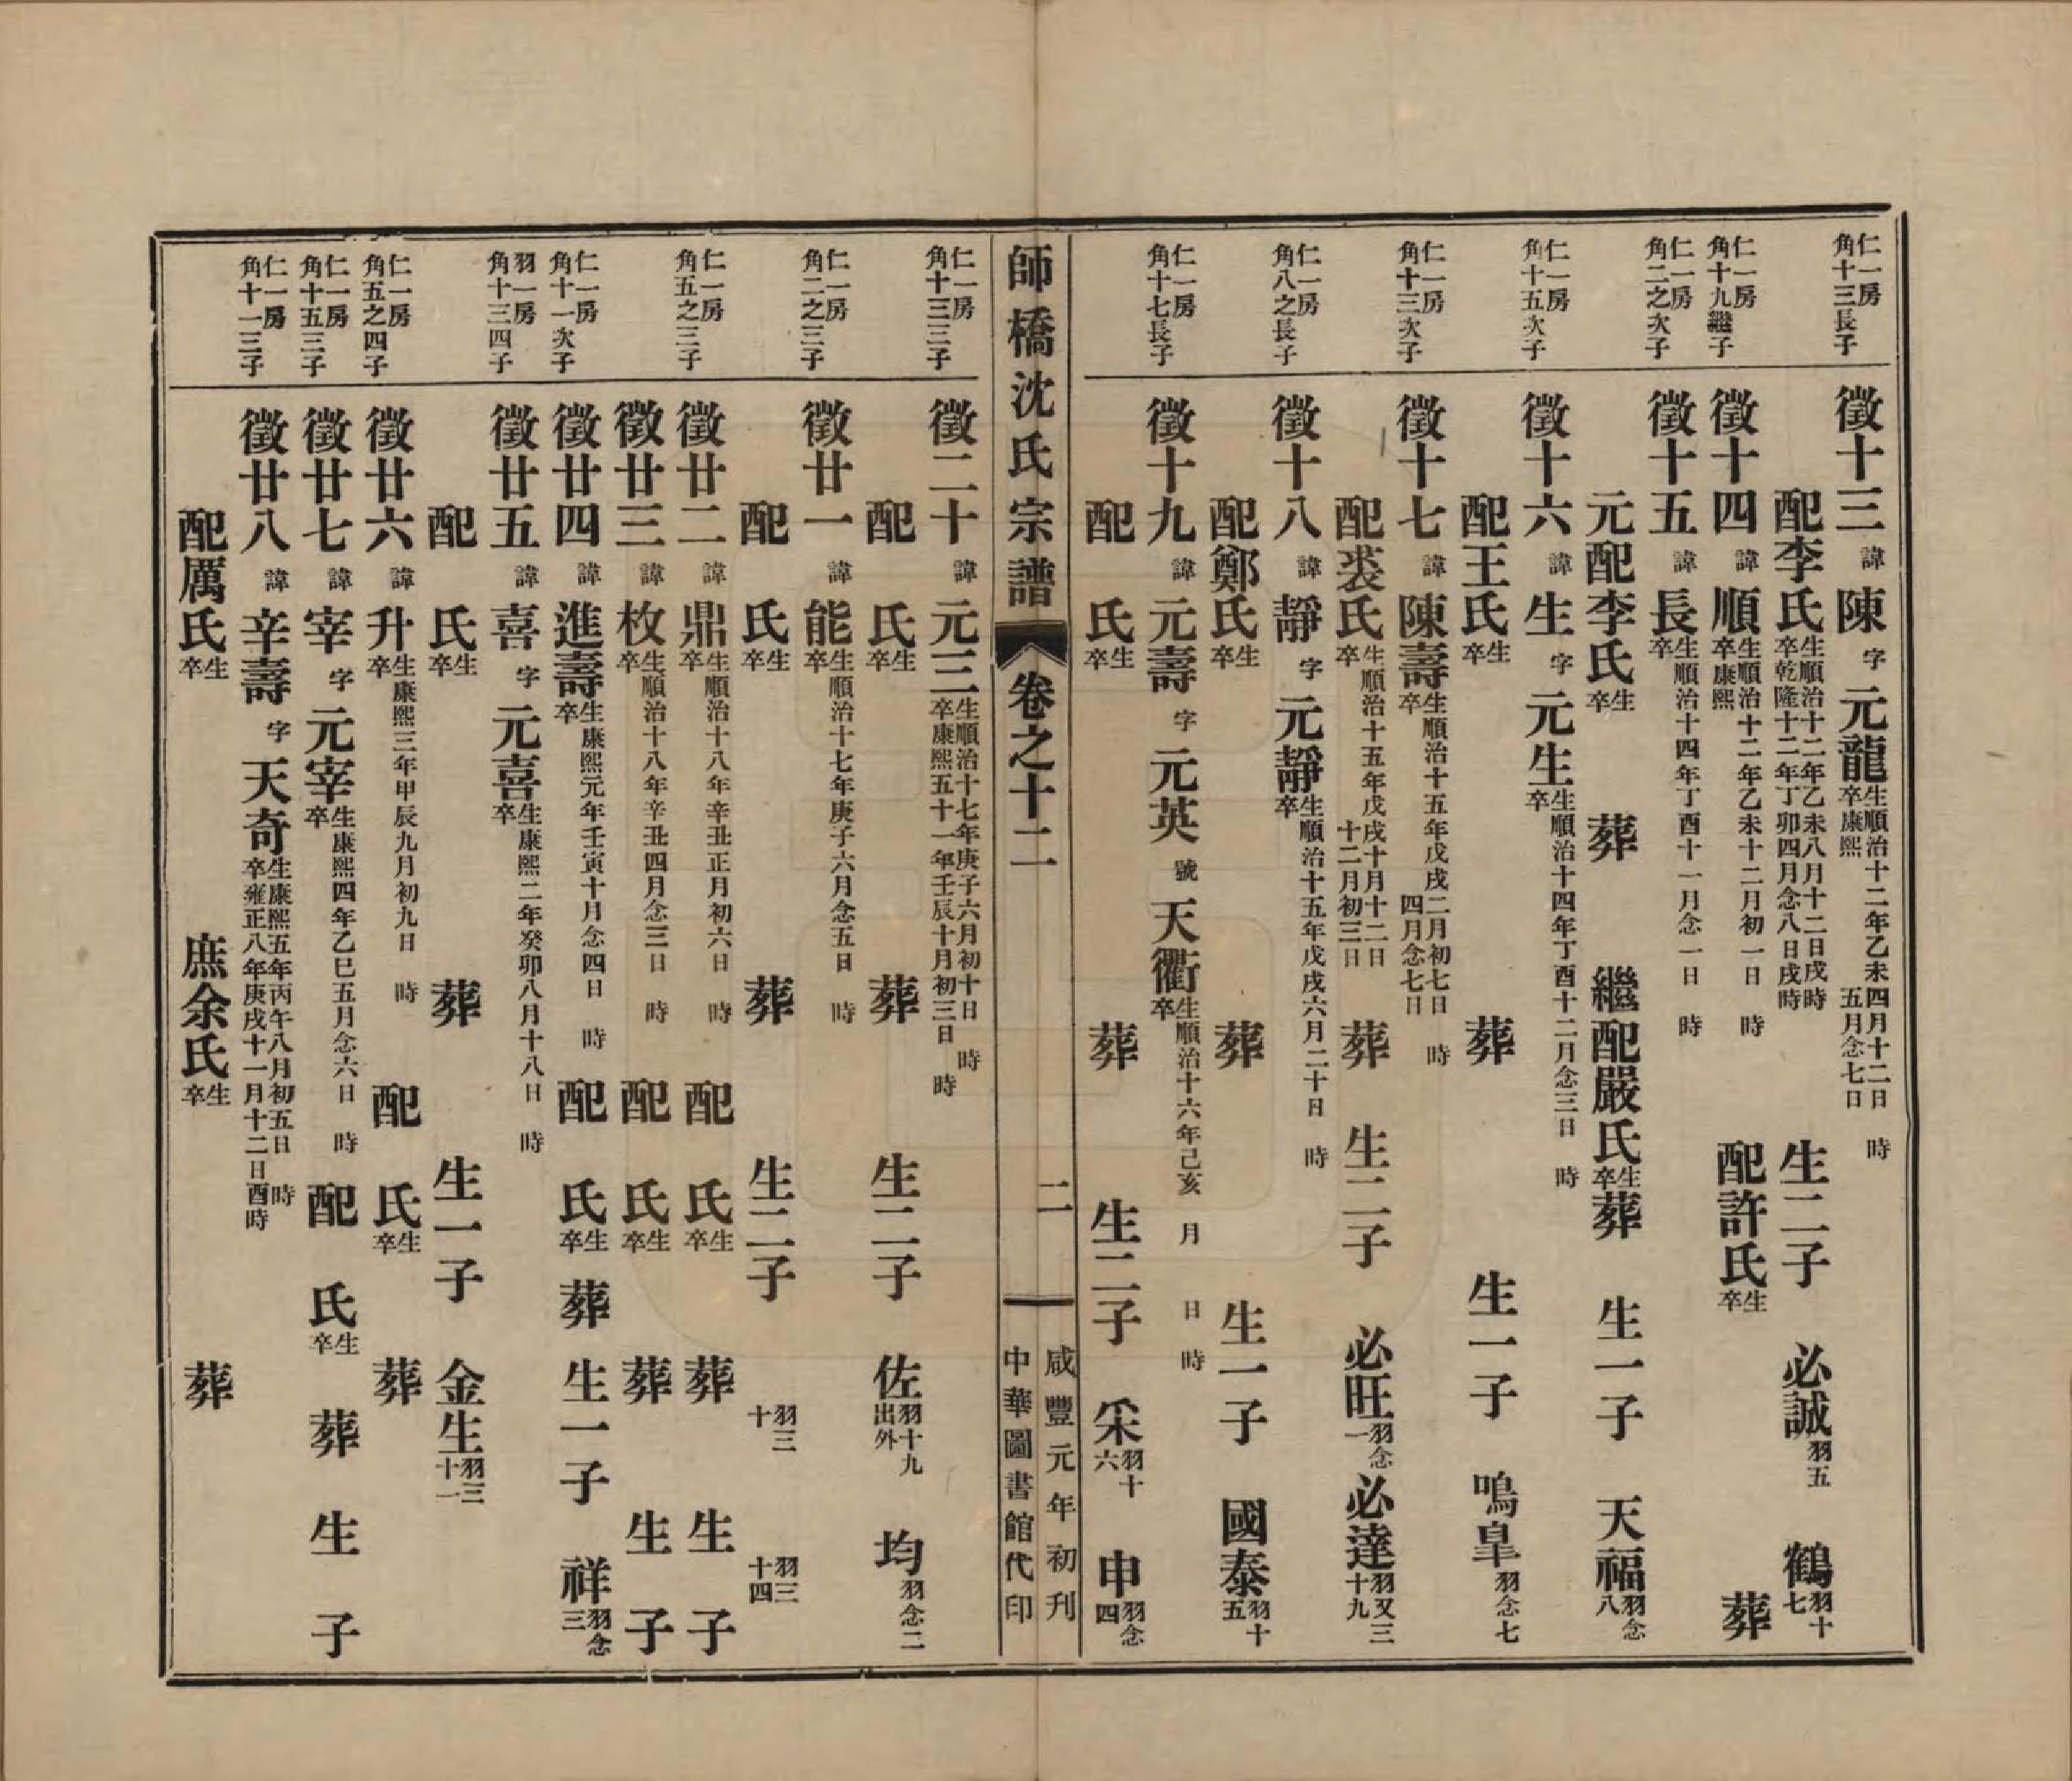 仁一房
角十三長子
徵十三 諱 陳 字 元龍 生順治十二年乙未四月十二日 時
卒康熙 五月念七日
配李氏 生順治十二年乙未八月十二日戌時
卒乾隆十二年丁卯四月念八日戌時 生二子 必誠 羽五 鶴 羽十七
仁一房
角十九繼子
徵十四 諱 順 生順治十二年乙未十二月初一日 時
卒康熙 配許氏 生
卒 葬
仁一房
角二之次子
徵十五 諱 長 生順治十四年丁酉十一月念一日 時
卒
元配李氏 生
卒 葬 繼配嚴氏 生
卒 葬 生一子 天福 羽念八
仁一房
角十五次子
徵十六 諱 生 字 元生 生順治十四年丁酉十二月念三日 時
卒
配王氏 生
卒 葬 生一子 鳴皐 羽念七
仁一房
角十三次子
徵十七 諱 陳壽 生順治十五年戊戌二月初七日 時
卒 四月念七日
配裘氏 生順治十五年戊戌十月十二日
卒 十二月初三日 葬 生二子 必旺 羽念一 必達 羽又三十九
仁一房
角八之長子
徵十八 諱 靜 字 元靜 生順治十五年戊戌六月二十日 時
卒
配鄭氏 生
卒 葬 生一子 國泰 羽十五
仁一房
角十七長子
徵十九 諱 元壽 字 元英 號 天衢 生順治十六年己亥 月 日 時
卒
配 氏 生
卒 葬 生二子 采 羽十六 申 羽念四
師橋沈氏宗譜 卷之十二 二
咸豐元年初刊
中華圖書館代印
仁一房
角十三三子
徵二十 諱 元三 生順治十七年庚子六月初十日 時
卒康熙五十一年壬辰十月初三日 時
配 氏 生
卒 葬 生二子 佐 羽十九
出外 均 羽念二
仁一房
角二之三子
徵廿一 諱 能 生順治十七年庚子六月念五日 時
卒
配 氏 生
卒 葬 生二子 羽三十 羽三十四
仁一房
角五之三子
徵廿二 諱 鼎 生順治十八年辛丑正月初六日 時
卒 配 氏 生
卒 葬 生 子
徵廿三 諱 枚 生順治十八年辛丑四月念三日 時
卒 配 氏 生
卒 葬 生 子
仁一房
角十一次子
徵廿四 諱 進壽 生康熙元年壬寅十月念四日 時
卒 配 氏 生
卒 葬 生一子 祥 羽念三
羽一房
角十三四子
徵廿五 諱 喜 字 元喜 生康熙二年癸卯八月十八日 時
卒
配 氏 生
卒 葬 生一子 金生 羽三十一
仁一房
角五之四子
徵廿六 諱 升 生康熙三年甲辰九月初九日 時
卒 配 氏 生
卒 葬
仁一房
角十五三子
徵廿七 諱 宰 字 元宰 生康熙四年乙巳五月念六日 時
卒 配 氏 生
卒 葬 生 子
仁一房
角十一三子
徵廿八 諱 辛壽 字 天奇 生康熙五年丙午八月初五日 時
卒雍正八年庚戌十一月十二日酉時
配厲氏 生
卒 庶余氏 生
卒 葬